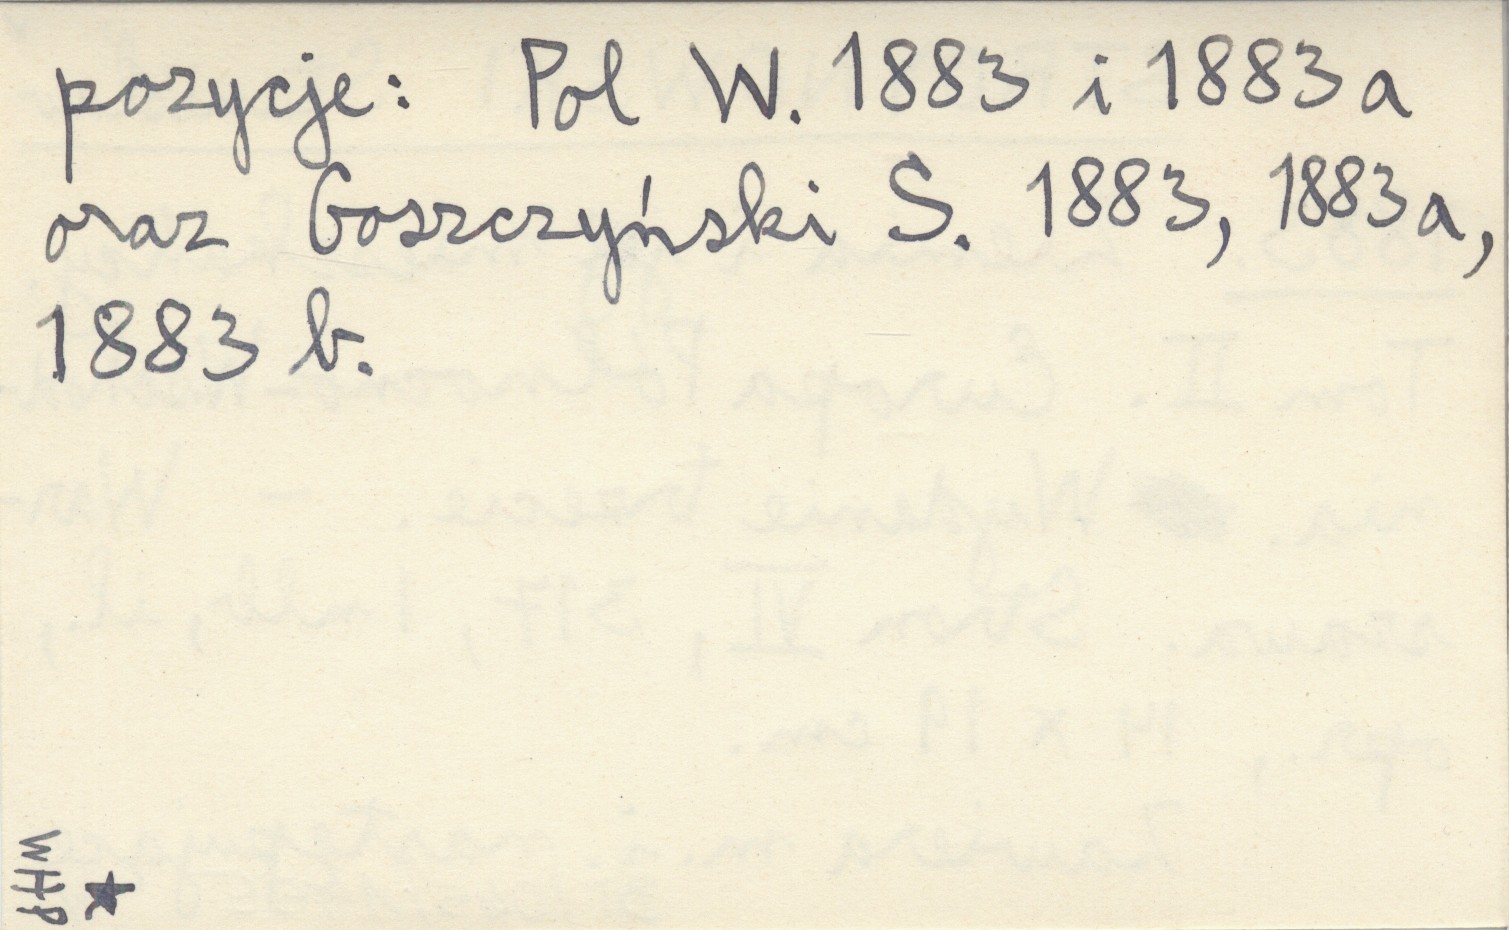 pozycje: Pol W. 1883 i 1883a
oraz Goszczyński S. 1883, 1883a,
1883 b.
WHP